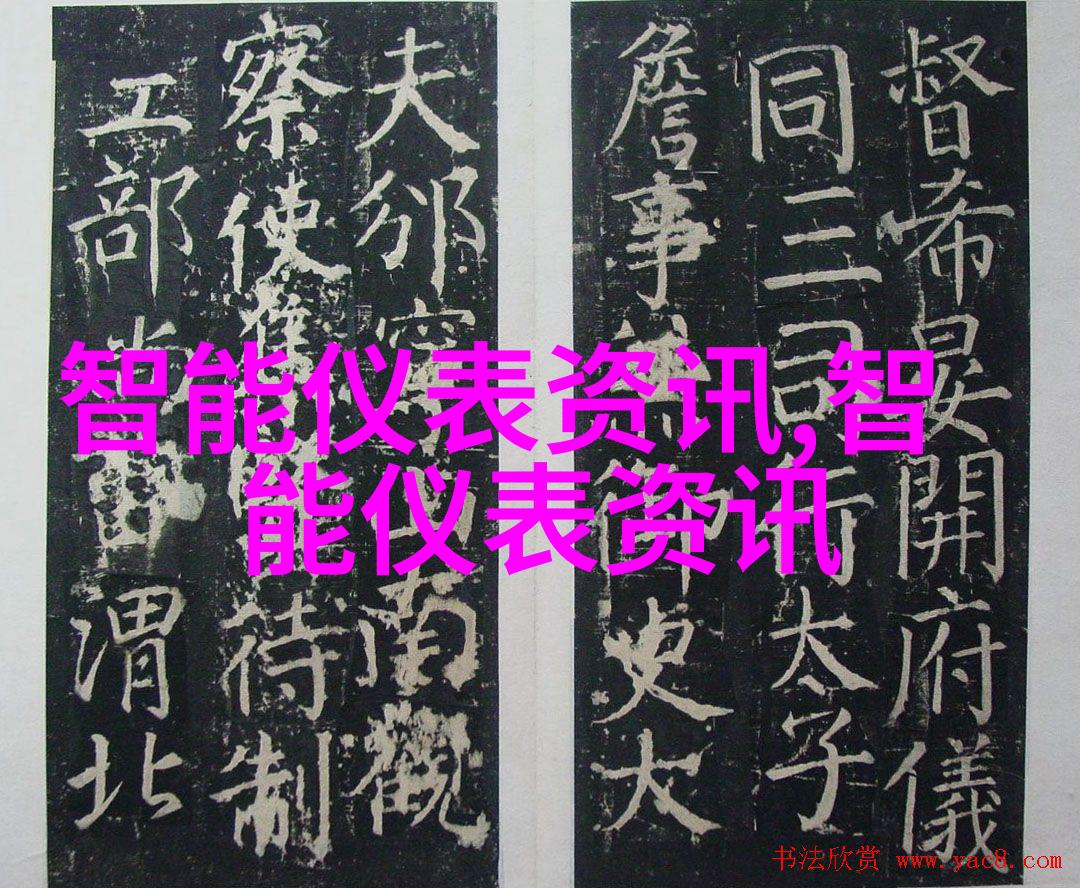 督希晏開府儀
同三司太子
詹事兼御史大
夫邠南觀
察使待制
工部尚渭北
智能仪表资讯,智
能仪表资讯
书法欣赏 www.yac8.com